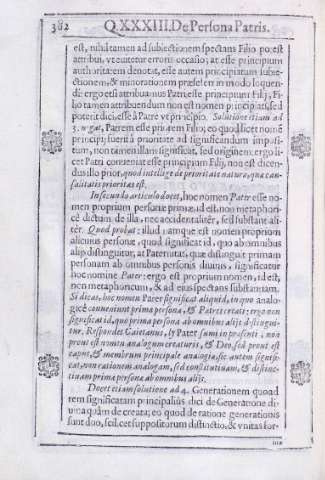 382 Q. XXXIII. De Persona Patris.
est, nihil tamen ad subiectionem spectans Filio potest
attribui, vt euitetur erroris occasio; at esse principium
authoritatem denotat, esse autem principiatum subie-
ctionem, & minorationem præsefert in modo loquen-
di: ergo etsi attribuamus Patri esse principium Filij, Fi-
lio tamen attribuendum non est nomen principiati, sed
poterit dici, esse à Patre vt principio. Solutione etiam ad
3. negat, Patrem esse priorem Filio; eo quod licet nomē
principij fuerit à prioritate ad significandum imposi-
tum, non tamen illam significat, sed originem: ergo li-
cet Patri conueniat esse principium Filij, non est dicen-
dus illo prior, quod intellige de prioritate naturæ, quæ cau-
salitatis prioritas est.
In secundo articulo docet, hoc nomen Pater esse no-
men proprium personæ primæ: id est, non metaphori-
cè dictum de illa, nec accidentaliter, sed substantiali-
ter. Quod probat: illud namque est nomen proprium
alicuius personæ, quod significat id, quo ab omnibus
alijs distinguitur; at Paternitas, quæ distinguit primam
personam ab omnibus personis diuinis, significatur
hoc nomine Pater: ergo est proprium nomen, id est,
non metaphoricum, & ad eius spectans substantiam.
Si dicas, hoc nomen Pater significat aliquid, in quo analo-
gicè conueniunt prima persona, & Patres creati: ergo non
significat id, quo prima persona ab omnibus alijs distingui-
tur. Respondet Caietanus, ly Pater sumi in præsenti, non
prout est nomen analogum creaturis, & Deo, sed prout est
captum, & membrum principale analogiæ; sic autem signifi-
cat, non rationem analogam, sed constitutiuam, & distinc-
tiuam primæ personæ ab omnibus alijs.
Docet etiam solutione ad 4. Generationem quoad
rem significatam principalius dici de Generatione di-
uina quàm de creata; eo quod de ratione generationis
sunt duo, scil. cet suppositorum distinctio, & vnitas for-